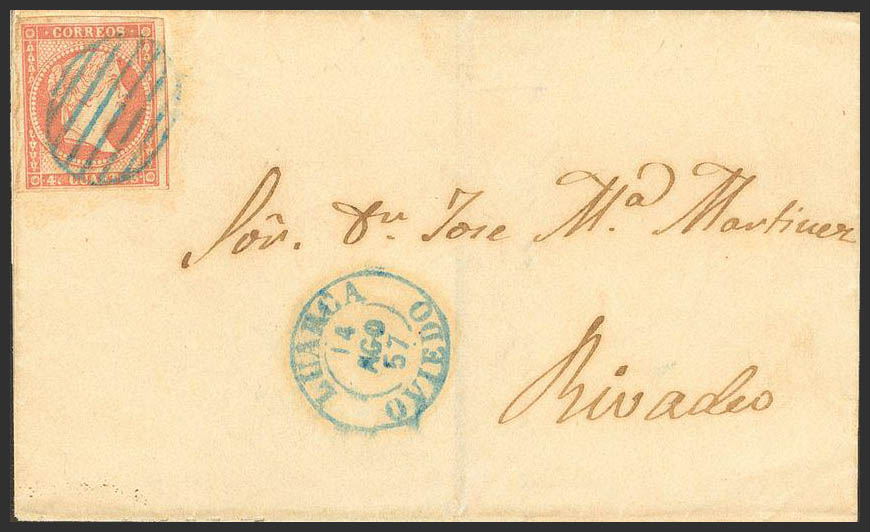 CORREOS
4 CUARTOS
Sôr. Dn Jose M.ª Martinez
LUARCA
14
AGO
57
OVIEDO
Rivadeo